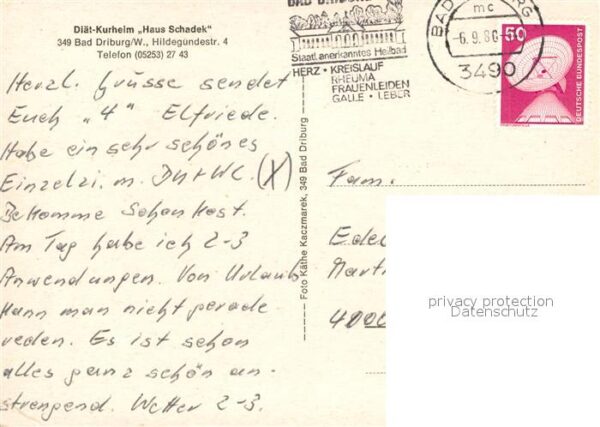 Diät-Kurheim „Haus Schadek"
349 Bad Driburg/W., Hildegundestr. 4
Telefon (05253) 27 43
Herzl. Grüsse sendet
Euch „4" Elfriede.
Habe ein sehr schönes
Einzelzi. m. Du+WC. (X)
Bekomme Schonkost.
Am Tag habe ich 2-3
Anwendungen. Von Urlaub
kann man nicht gerade
reden. Es ist schon
alles ganz schön an-
strengend. Wetter 2-3.
Foto Käthe Kaczmarek, 349 Bad Driburg
BAD DRIBURG
Staatl. anerkanntes Heilbad
HERZ • KREISLAUF
RHEUMA
FRAUENLEIDEN
GALLE • LEBER
BAD DRIBURG
mc
-6.9.80
3490
50
DEUTSCHE BUNDESPOST
Fam.
privacy protection
Datenschutz